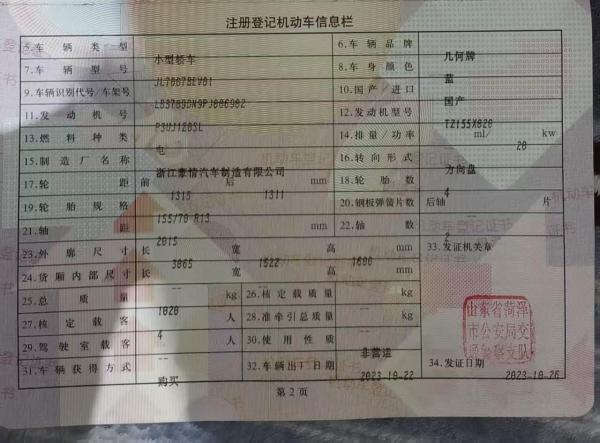 注册登记机动车信息栏
5.车辆类型 小型轿车 6.车辆品牌 几何牌
7.车辆型号 JL7007BEV01 8.车身颜色 蓝
9.车辆识别代号/车架号 10.国产/进口 国产
11.发动机号 P3UJ120SL 12.发动机型号 TZ155X020
13.燃料种类 电 14.排量/功率 ml/ 20 kw
15.制造厂名称 浙江豪情汽车制造有限公司 16.转向形式 方向盘
17.轮距 前 1315 后 1311 mm 18.轮胎数 4
19.轮胎规格 155/70 R13 20.钢板弹簧片数 后轴 -- 片
21.轴距 2015 mm 22.轴数
23.外廓尺寸 长 3065 宽 1522 高 1600 mm 33.发证机关章
24.货厢内部尺寸 长 -- 宽 -- 高 -- mm
25.总质量 1020 kg 26.核定载质量 -- kg
27.核定载客 4 人 28.准牵引总质量 -- kg
29.驾驶室载客 -- 人 30.使用性质 非营运
31.车辆获得方式 购买 32.车辆出厂日期 2023-10-22 34.发证日期 2023-10-26
山东省菏泽
市公安局交
通警察支队
第2页